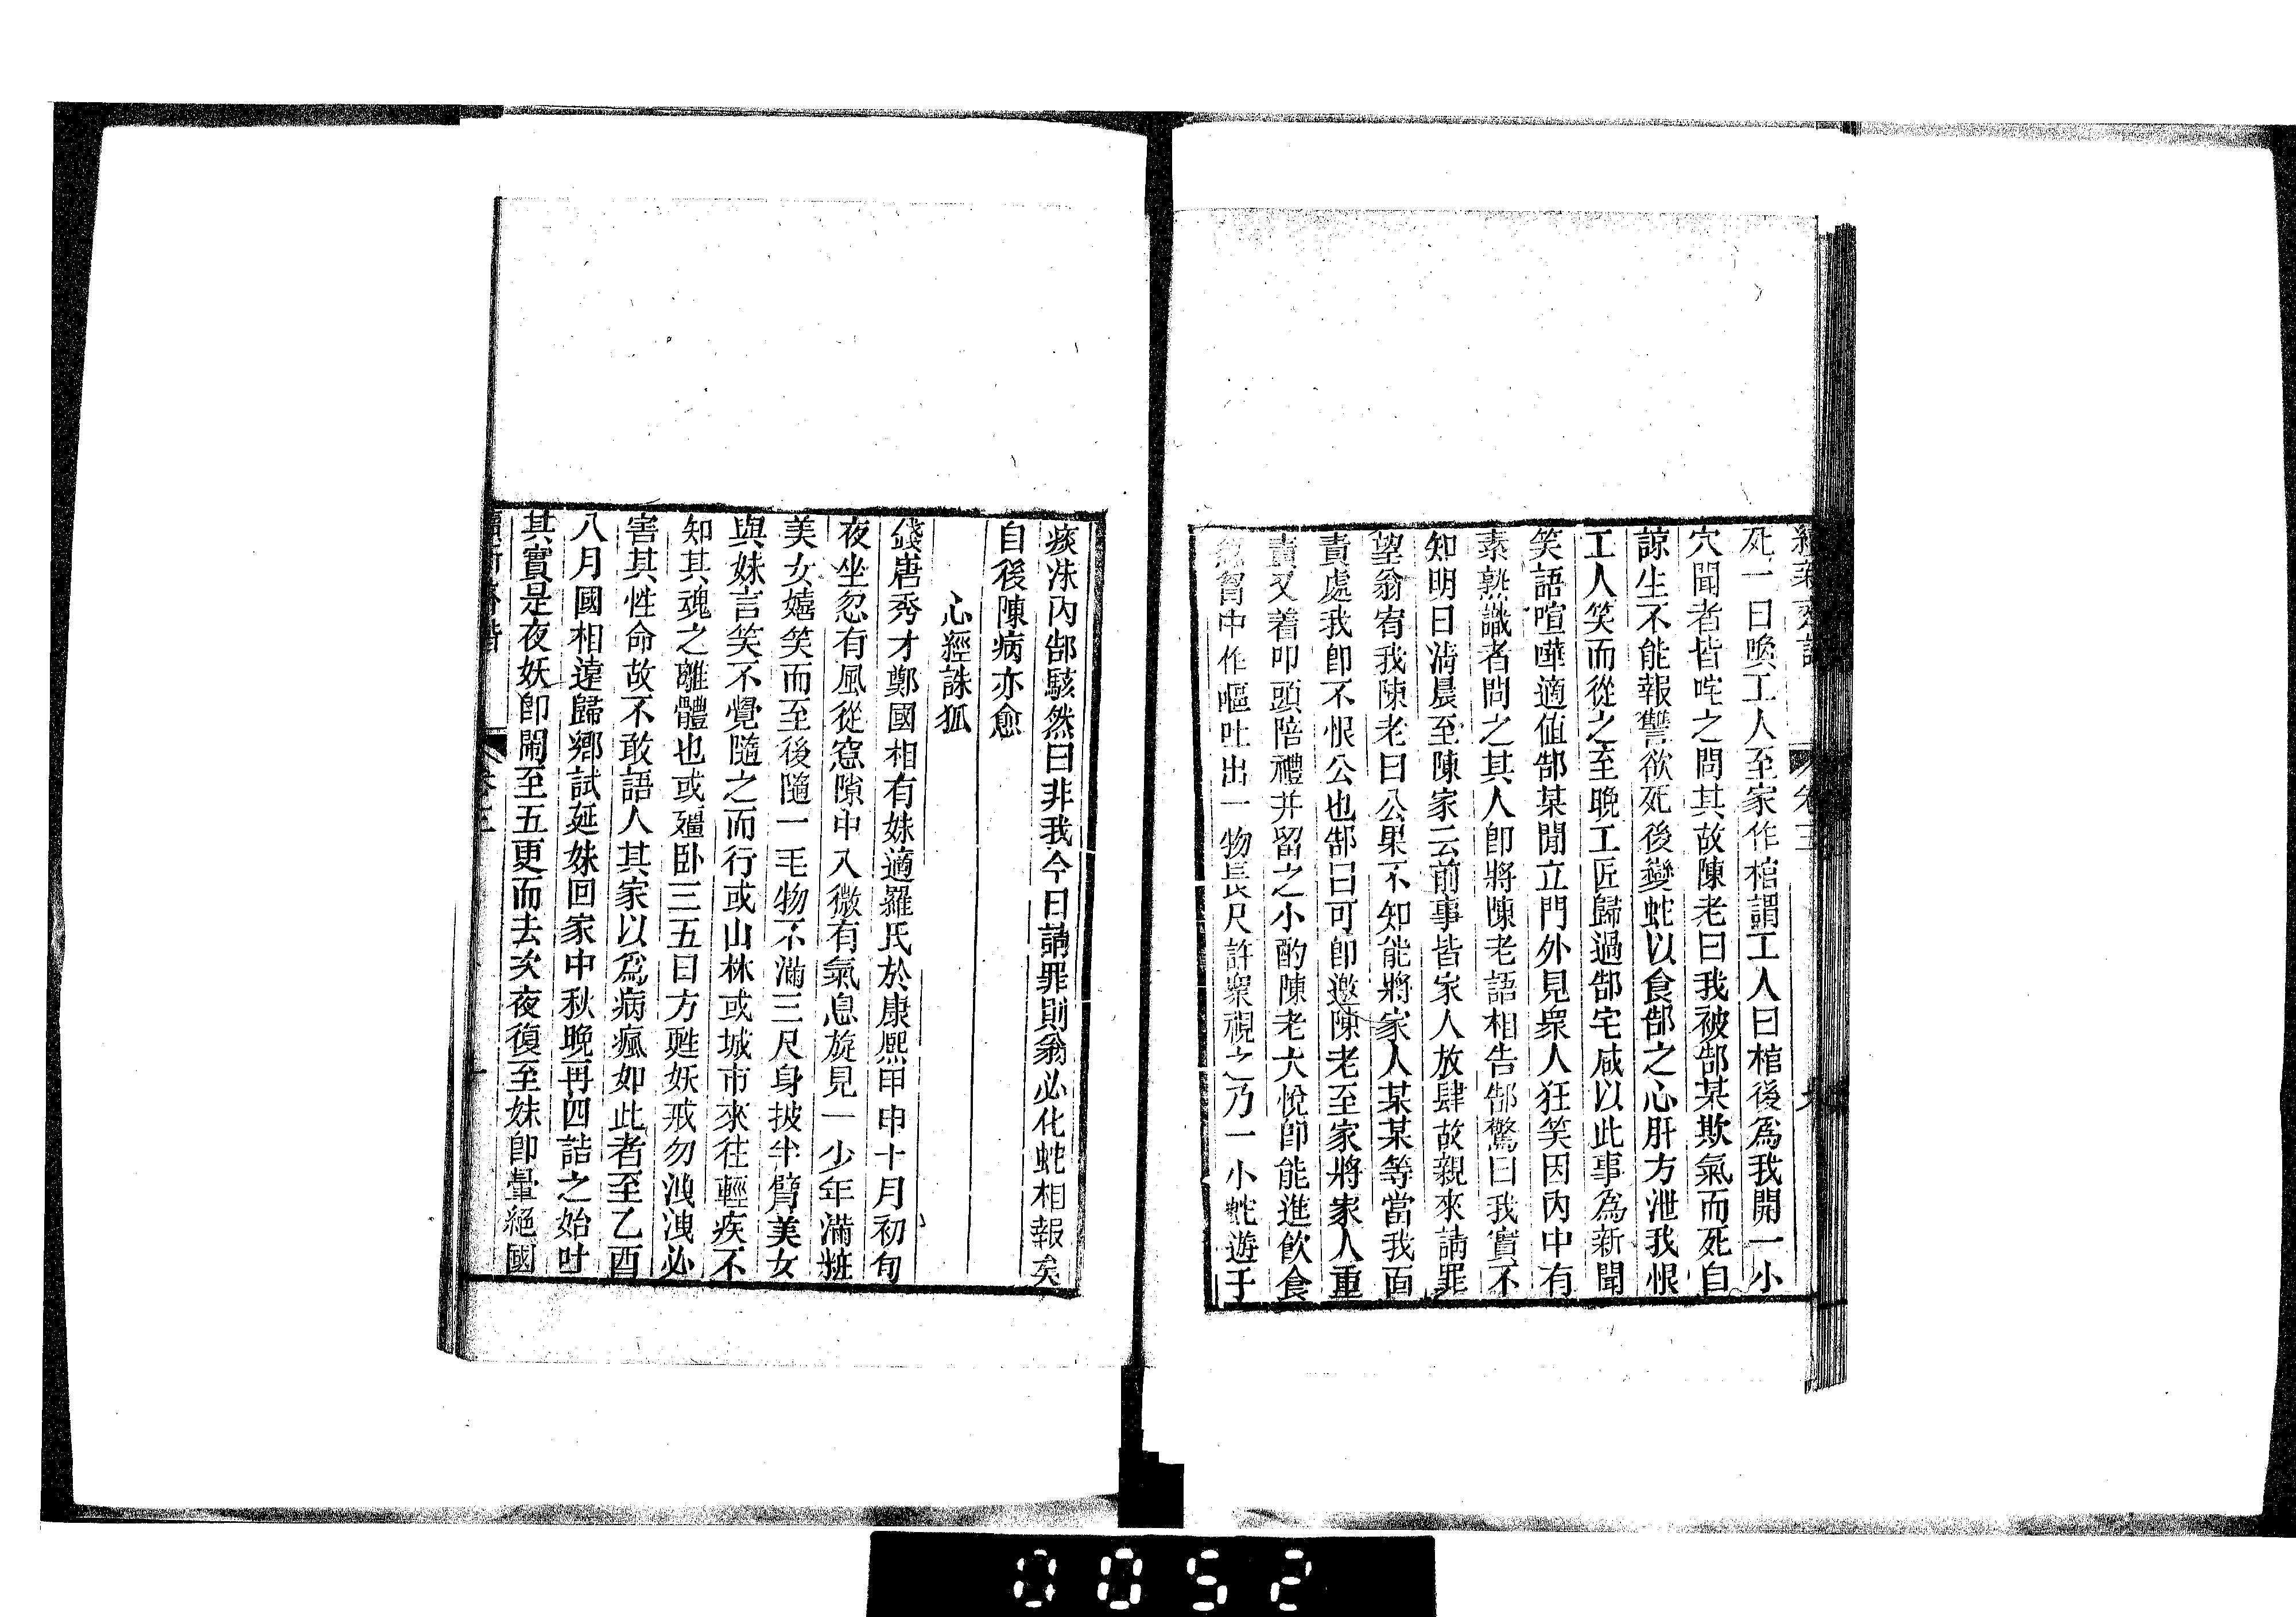 續新齊諧 卷三
死一日喚工人至家作棺謂工人曰棺後爲我開一小
穴聞者皆咤之問其故陳老曰我被郜某欺氣而死自
諒生不能報讐欲死後變蛇以食郜之心肝方泄我恨
工人笑而從之至晚工匠歸過郜宅咸以此事爲新聞
笑語喧嘩適值郜某閒立門外見衆人狂笑因內中有
素熟識者問之其人卽將陳老語相告郜驚曰我實不
知明日淸晨至陳家云前事皆家人放肆故親來請罪
望翁宥我陳老曰公果不知能將家人某某等當我面
責處我卽不恨公也郜曰可卽邀陳老至家將家人重
責又着叩頭陪禮并留之小酌陳老大悅卽能進飮食
忽胷中作嘔吐出一物長尺許衆視之乃一小蛇遊于
痰沫內郜駭然曰非我今日請罪則翁必化蛇相報矣
自後陳病亦愈
心經誅狐
錢唐秀才鄭國相有妹適羅氏於康熙甲申十月初旬
夜坐忽有風從窻隙中入微有氣息旋見一少年滿粧
美女嬉笑而至後隨一毛物不滿三尺身披半臂美女
與妹言笑不覺隨之而行或山林或城市來往輕疾不
知其魂之離體也或殭卧三五日方甦妖戒勿洩洩必
害其性命故不敢語人其家以爲病瘋如此者至乙酉
八月國相遠歸鄉試延妹回家中秋晚再四詰之始吐
其實是夜妖卽鬧至五更而去次夜復至妹卽暈絕國
續新齊諧 卷三